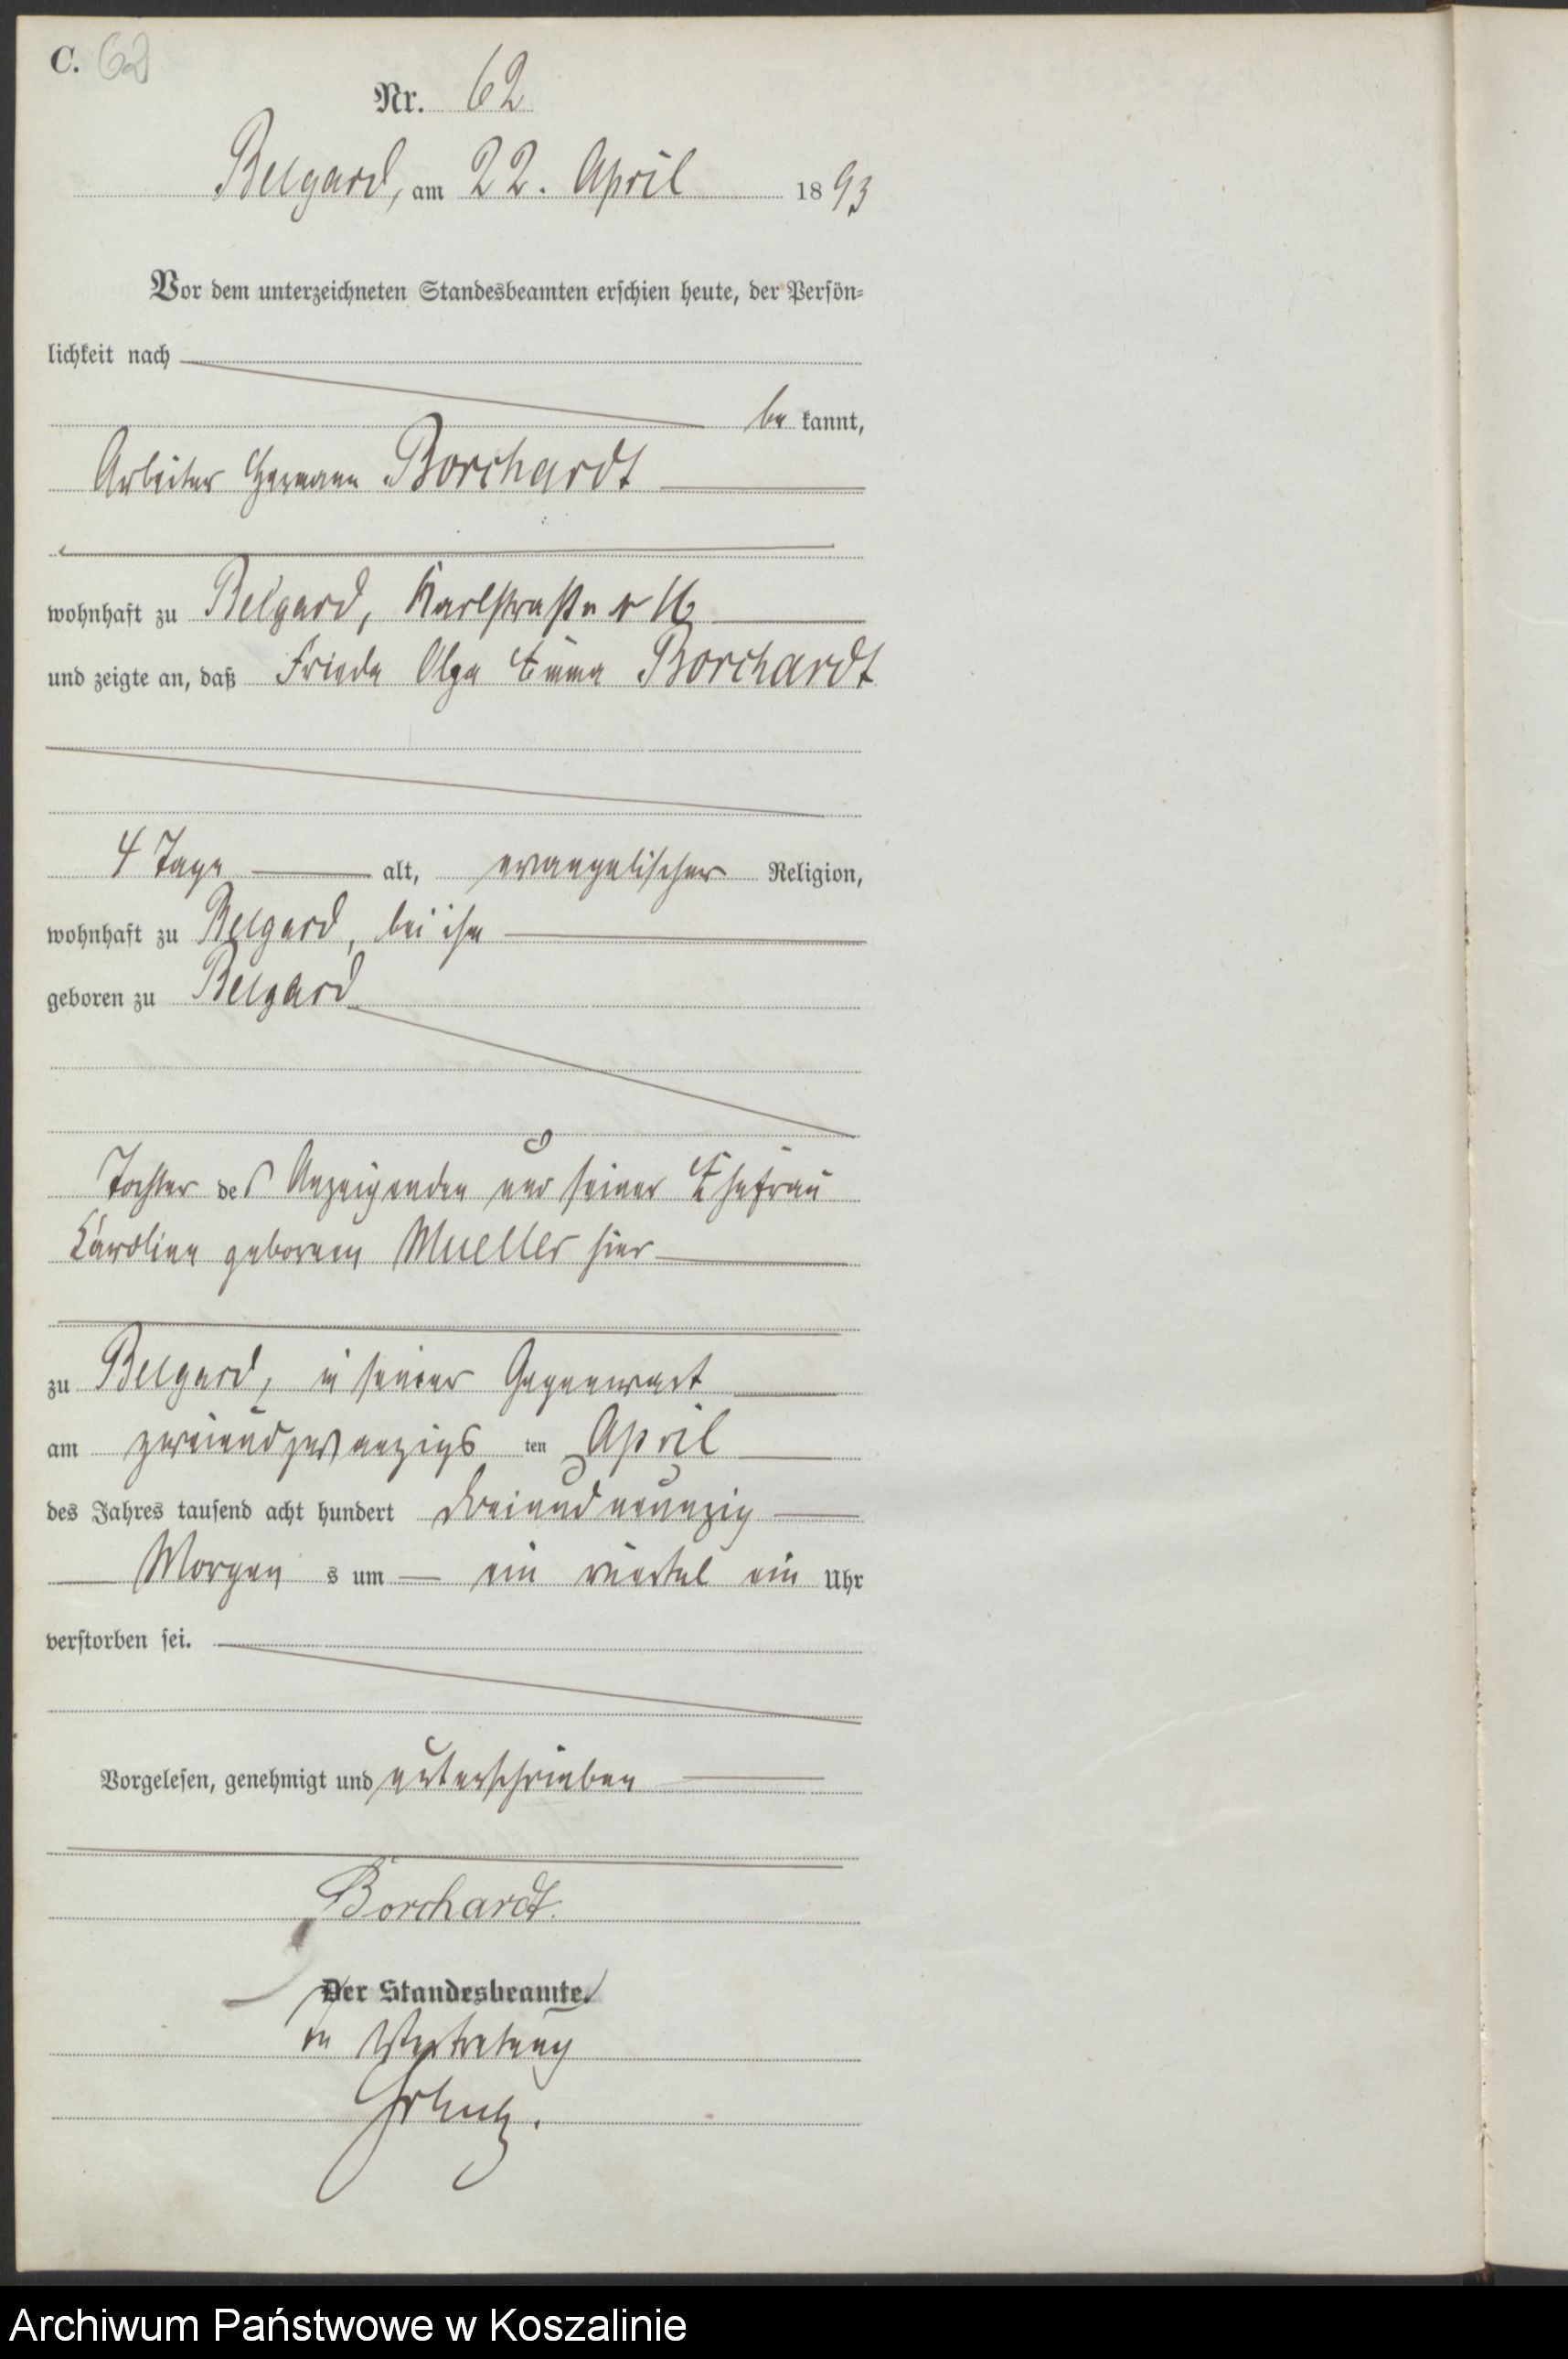 C. 62
Nr. 62
Belgard, am 22. April 1893
Vor dem unterzeichneten Standesbeamten erschien heute, der Persön-
lichkeit nach
be kannt,
Arbeiter Hermann Borchardt
wohnhaft zu Belgard, Karlstraße
und zeigte an, daß Frieda Olga Emma Borchardt
4 Tage alt, evangelischer Religion,
wohnhaft zu Belgard, bei ihm
geboren zu Belgard
Tochter des Anzeigenden und seiner Ehefrau
Karoline geborenen Mueller hier
zu Belgard, in seiner Gegenwart
am zweiundzwanzigs ten April
des Jahres tausend acht hundert dreiundneunzig
Morgen s um ein viertel ein Uhr
verstorben sei.
Vorgelesen, genehmigt und unterschrieben
Borchardt.
Der Standesbeamte.
In Vertretung
Archiwum Państwowe w Koszalinie